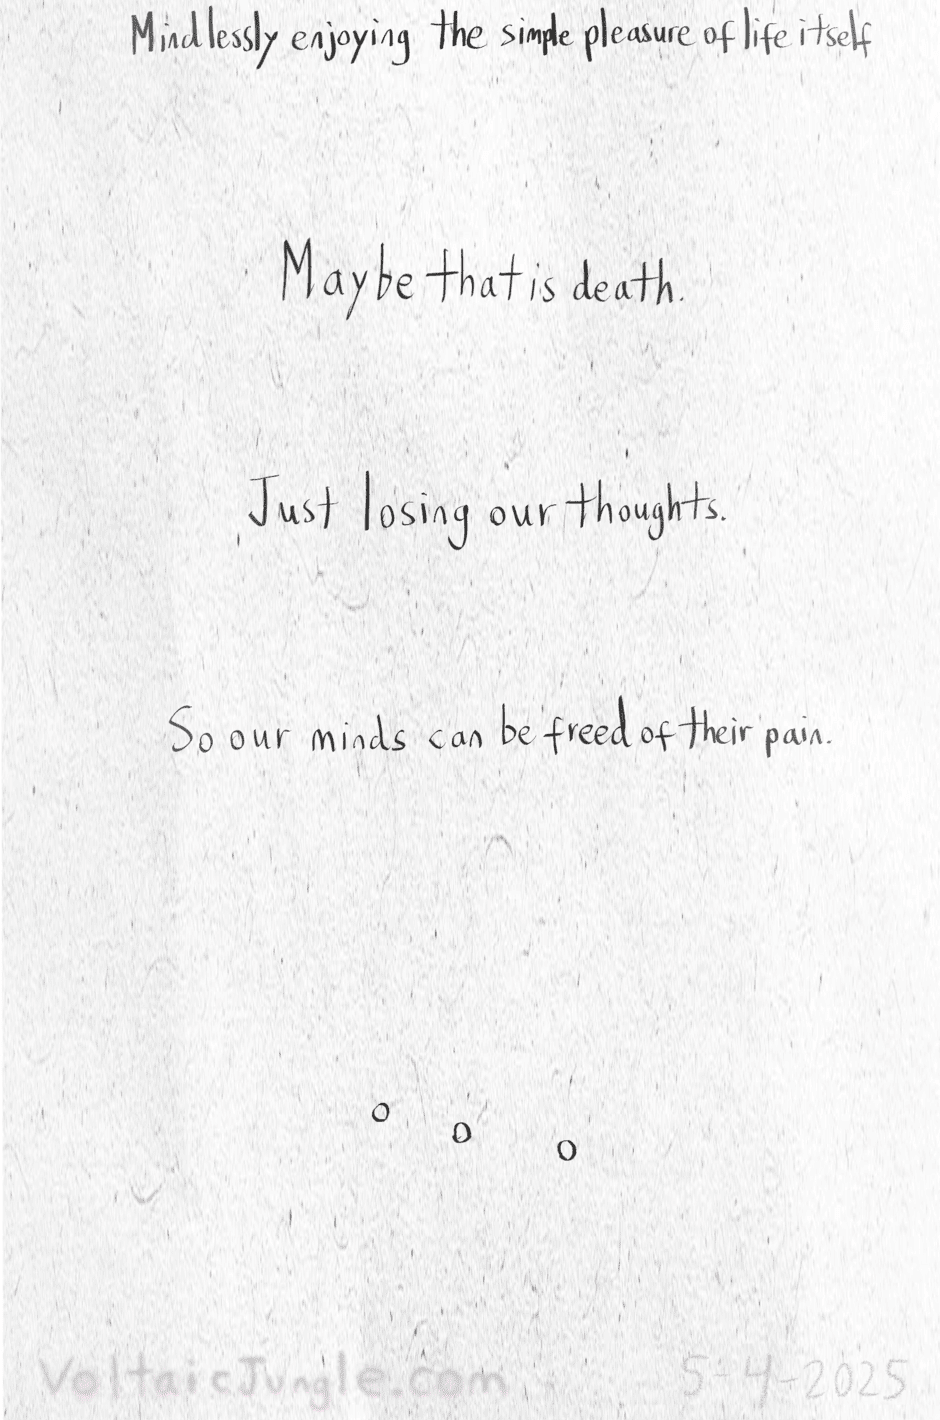 Mindlessly enjoying the simple pleasure of life itself
Maybe that is death.
Just losing our thoughts.
So our minds can be freed of their pain.
o o o
VoltaicJungle.com 5-4-2025